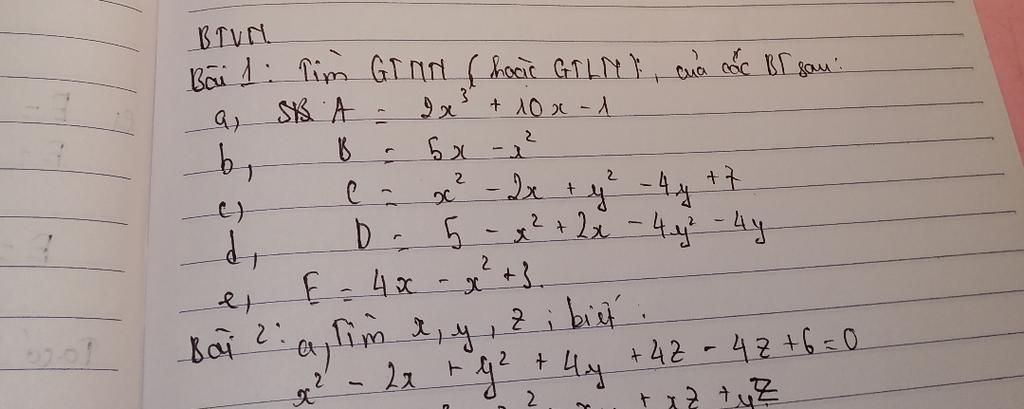 BTVN
Bài 1: Tìm GTNN (hoặc GTLN), của các BT sau:
a, A = 2x³ + 10x - 1
b, B = 5x - x²
c) C = x² - 2x + y² - 4y + 7
d, D = 5 - x² + 2x - 4y² - 4y
e, E = 4x - x² + 3.
Bài 2: a, Tìm x, y, z; biết:
x² - 2x + y² + 4y + 4z - 4z + 6 = 0
+ xz + yz